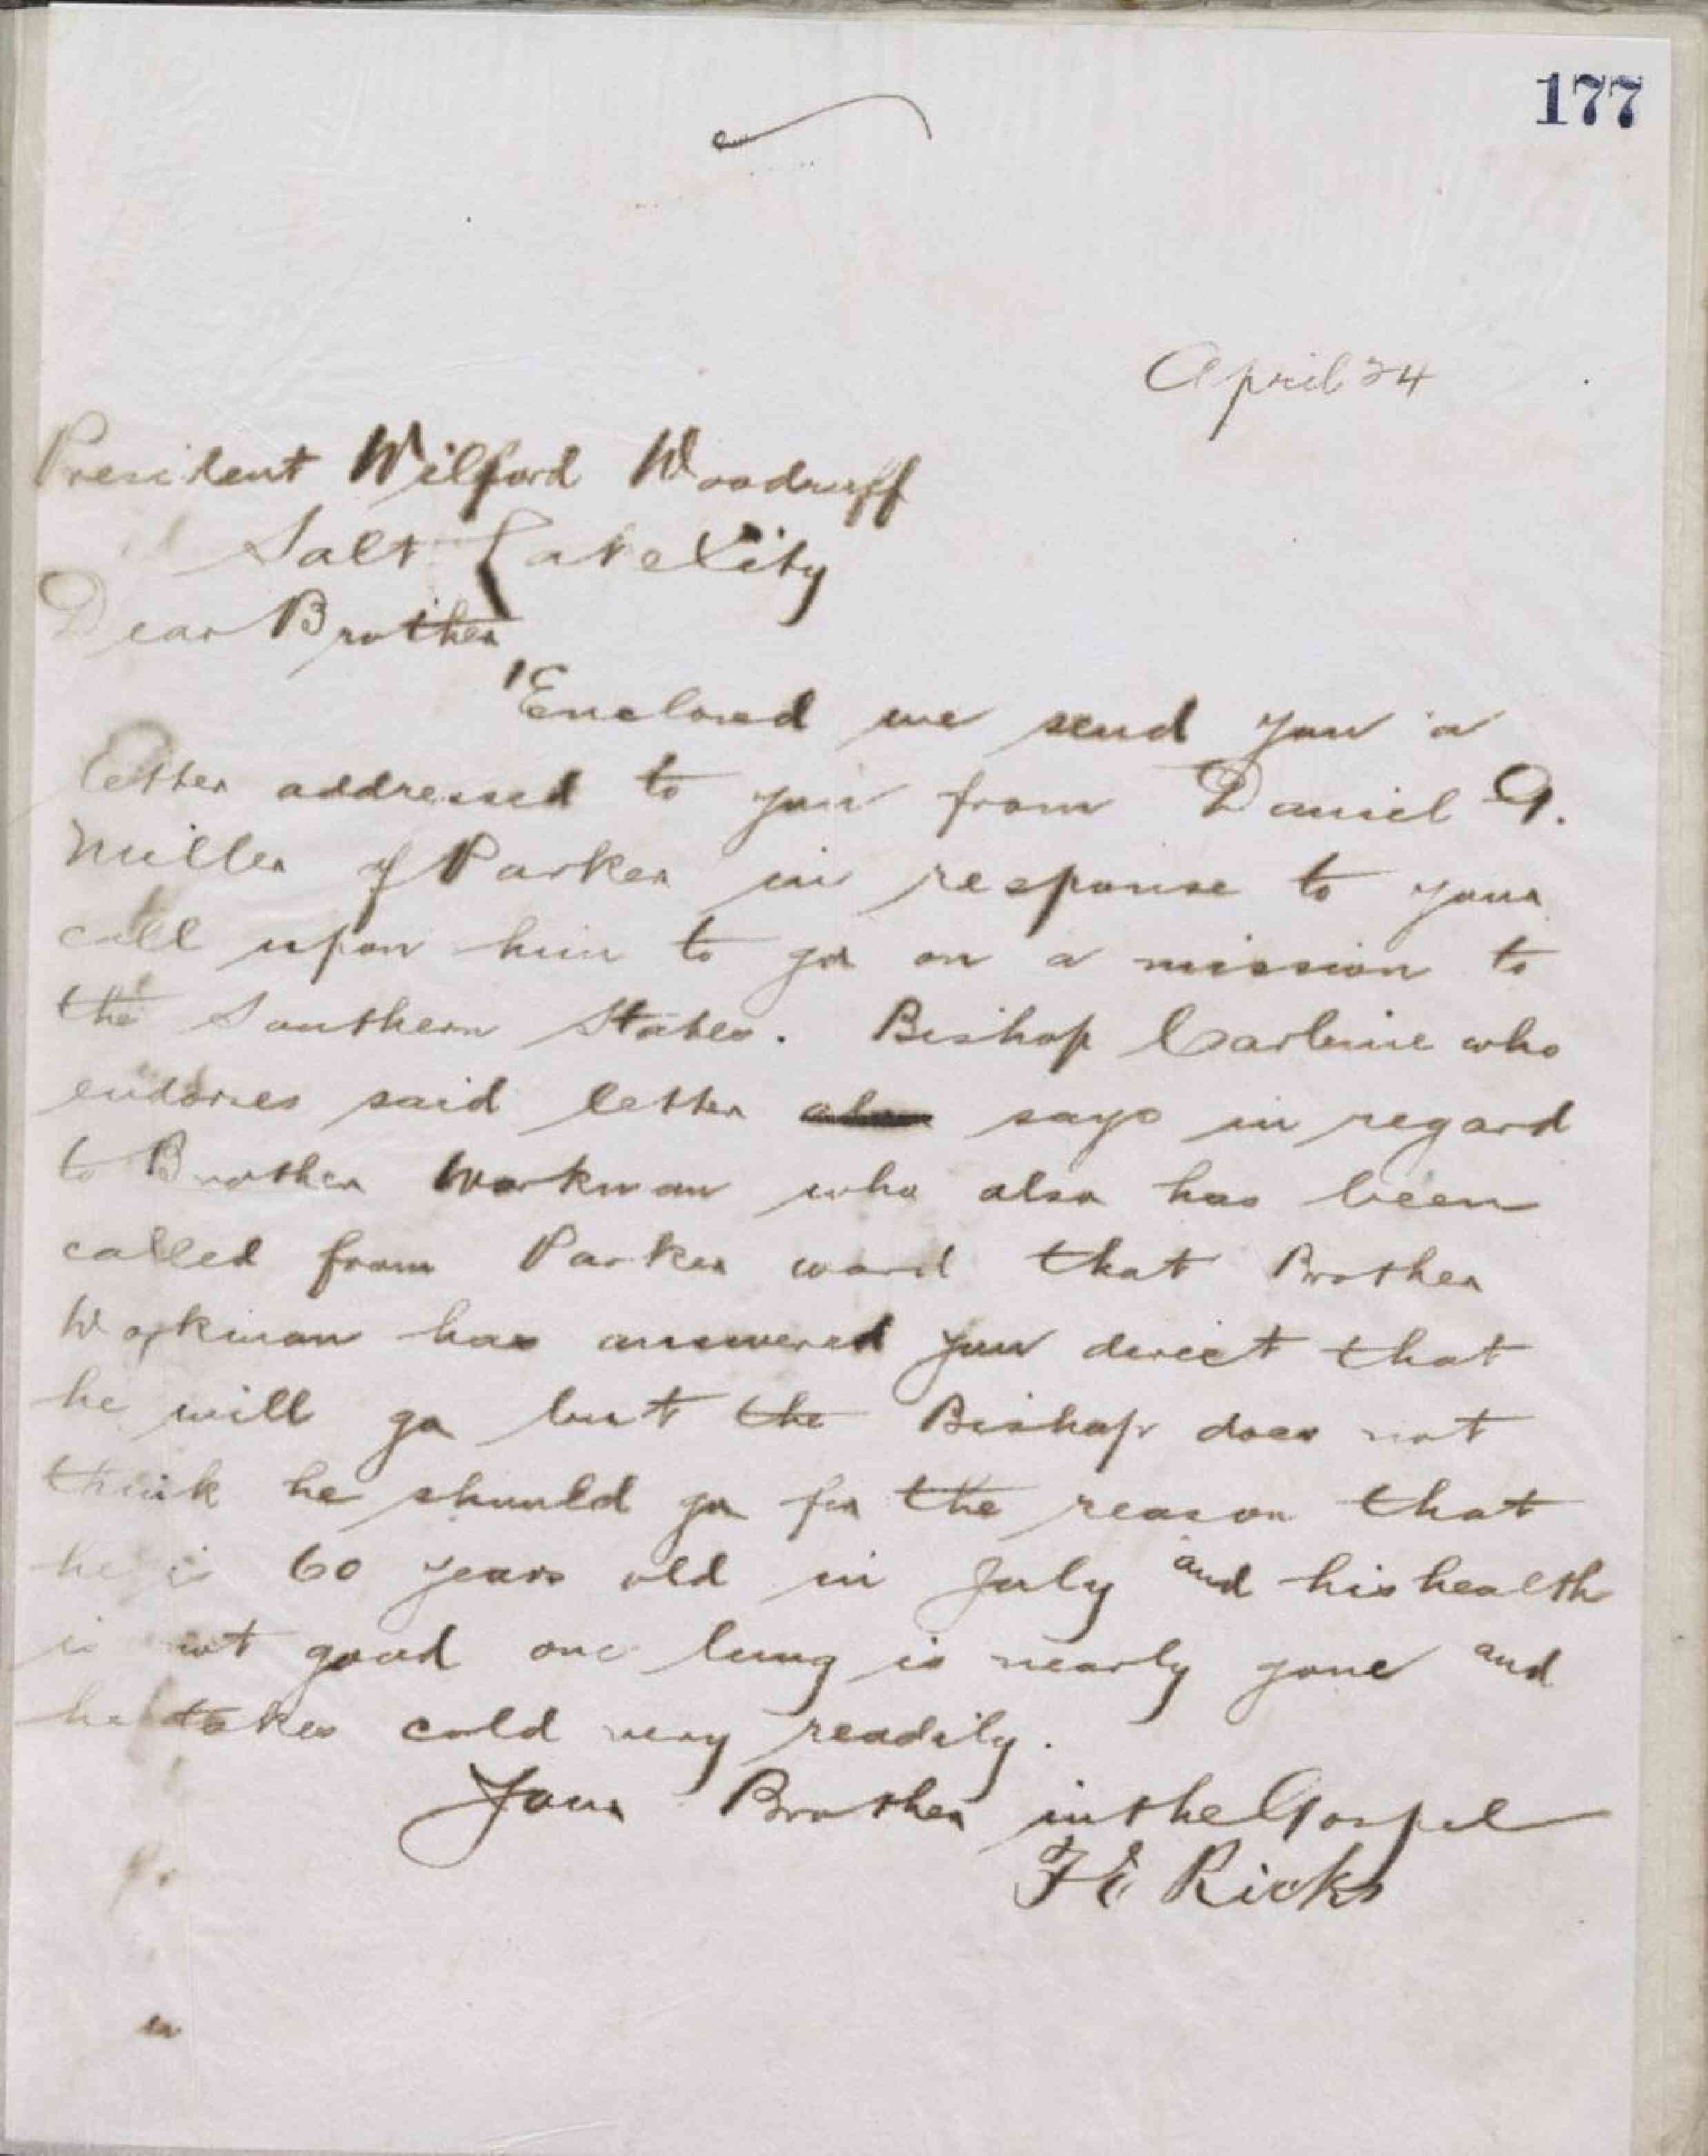 177
April 24
President Wilford Woodruff
Salt Lake City
Dear Brother
Enclosed we send you a
letter addressed to you from Daniel G.
Miller of Parker in response to your
call upon him to go on a mission to
the Southern States. Bishop Carbine who
endorses said letter also says in regard
to Brother Workman who also has been
called from Parker ward that Brother
Workman has answered you direct that
he will go but the Bishop does not
think he should go for the reason that
he is 60 years old in July and his health
is not good one lung is nearly gone and
he takes cold very readily.
Your Brother in the Gospel
T E Ricks